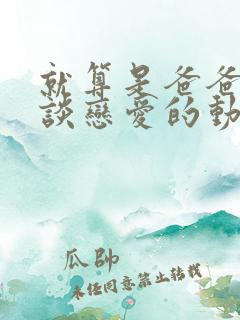 就算是爸爸
談戀愛的動
瓜帥
未經同意禁止轉載